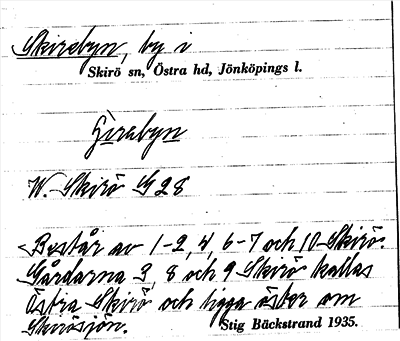 Skirebyn, by i
Skirö sn, Östra hd, Jönköpings l.
W. Skirö G28
Består av 1-2, 4, 6-7 och 10 Skirö.
Gårdarna 3, 8 och 9 Skirö kallas
Östra Skirö och ligga öster om
Skirösjön. Stig Bäckstrand 1935.